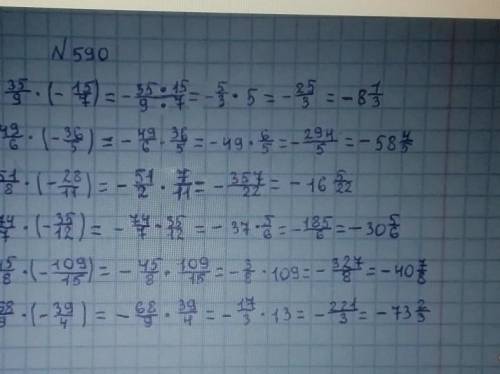 N 590
35/9 · (- 15/7) = - 35·15/9·7 = - 5/3 · 5 = - 25/3 = -8 1/3
49/6 · (- 36/5) = - 49/6 · 36/5 = -49 · 6/5 = - 294/5 = -58 4/5
51/8 · (- 28/11) = - 51/2 · 7/11 = - 357/22 = -16 5/22
74/7 · (- 35/12) = - 74/7 · 35/12 = -37 · 5/6 = - 185/6 = -30 5/6
45/8 · (- 109/15) = - 45/8 · 109/15 = - 3/8 · 109 = - 327/8 = -40 7/8
68/9 · (- 39/4) = - 68/9 · 39/4 = - 17/3 · 13 = - 221/3 = -73 2/3